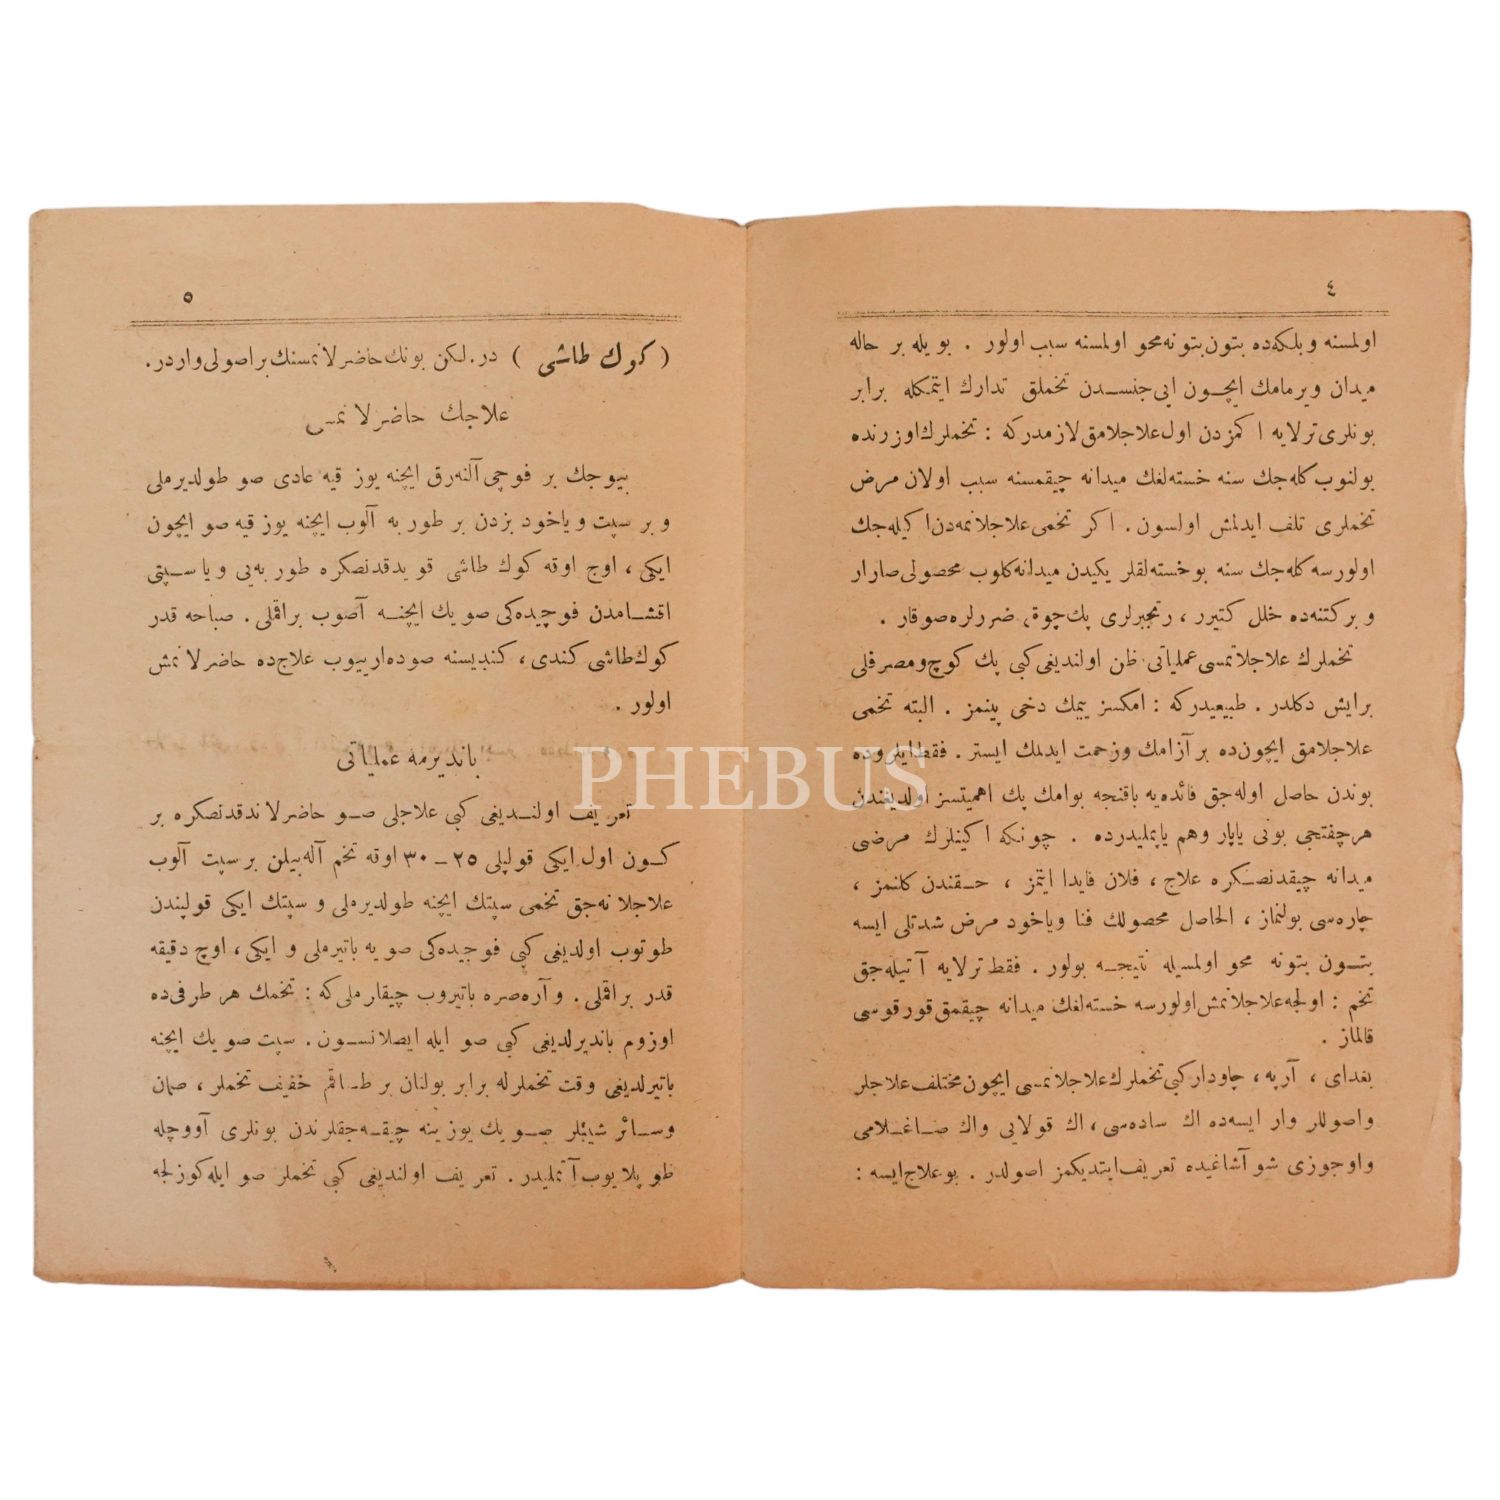 ٤
اولمسنه و بلكه‌ده بتون بتونه محو اولمسنه سبب اولور . بویله بر حاله
میدان ویرمامك ایچون ایی جنسدن تخملق تدارك ایتمكله برابر
بونلری ترلایه اكمزدن اول علاجلامق لازمدركه : تخملرك اوزرنده
بولنوب كله‌جك سنه خسته‌لغك میدانه چیقمسنه سبب اولان مرض
تخملری تلف ایدلمش اولسون . اكر تخمی علاجلانمه‌دن اكیله‌جك
اولورسه كله‌جك سنه بو خسته‌لقلر یكیدن میدانه كلوب محصولی صارار
و بركتنه‌ده خلل كتیرر ، رنجبرلری پك چوق ضررلره صوقار .
تخملرك علاجلانمسی عملیاتی ظن اولندیغی كبی پك كوچ و مصرفلی
بر ایش دكلدر . طبیعیدركه : امكسز ییمك دخی یینمز . البته تخمی
علاجلامق ایچون‌ده بر آز امك و زحمت ایدلمك ایستر . فقط ایلروده
بوندن حاصل اوله‌جق فائده‌یه باقنجه بو امك پك اهمیتسز اولدیغندن
هر چفتجی بونی یاپار وهم یاپملیدرده . چونكه اكینلرك مرضی
میدانه چیقدنصكره علاج ، فلان فایدا ایتمز ، حقندن كلنمز ،
چاره‌سی بولنماز ، الحاصل محصولك فنا ویاخود مرض شدتلی ایسه
بتون بتونه محو اولمسیله نتیجه بولور . فقط ترلایه آتیله‌جق
تخم : اولجه علاجلانمش اولورسه خسته‌لغك میدانه چیقمق قورقوسی
قالماز .
بغدای ، آرپه ، چاودار كبی تخملرك علاجلانمسی ایچون مختلف علاجلر
واصوللر وار ایسه‌ده اك ساده‌سی ، اك قولایی واك صاغلامی
واوجوزی شو آشاغیده تعریف ایتدیكمز اصولدر . بو علاج ایسه :
٥
( كوك طاشی ) در . لكن بونك حاضرلانمسنك بر اصولی واردر .
علاجك حاضرلانمسی
بیوجك بر فوچی آلنه‌رق ایچنه یوز قیه عادی صو طولدیرملی
و بر سپت و یاخود بزدن بر طوربه آلوب ایچنه یوز قیه صو ایچون
ایكی ، اوچ اوقه كوك طاشی قویدقدنصكره طوربه‌یی و یا سپتی
اقشامدن فوچیده‌كی صویك ایچنه آصوب براقملی . صباحه قدر
كوك طاشی كندی ، كندیسنه صوده ارییوب علاج‌ده حاضرلانمش
اولور .
باندیرمه عملیاتی
تعریف اولندیغی كبی علاجلی صو حاضرلاندقدنصكره بر
كون اول ایكی قولپلی ٢٥ – ٣٠ اوقه تخم آله‌بیلن بر سپت آلوب
علاجلانه‌جق تخمی سپتك ایچنه طولدیرملی و سپتك ایكی قولپندن
طوتوب اولدیغی كبی فوچیده‌كی صویه باتیرملی و ایكی ، اوچ دقیقه
قدر براقملی . و آره‌صره باتیروب چیقارملی كه : تخمك هر طرفی‌ده
اوزوم باندیرلدیغی كبی صو ایله ایصلانسون . سپت صویك ایچنه
باتیرلدیغی وقت تخملرله برابر بولنان بر طاقم خفیف تخملر ، صمان
وسائر شیئلر صویك یوزینه چیقه‌جقلرندن بونلری آووچله
طوپلایوب آتملیدر . تعریف اولندیغی كبی تخملر صو ایله كوزلجه
PHEBUS